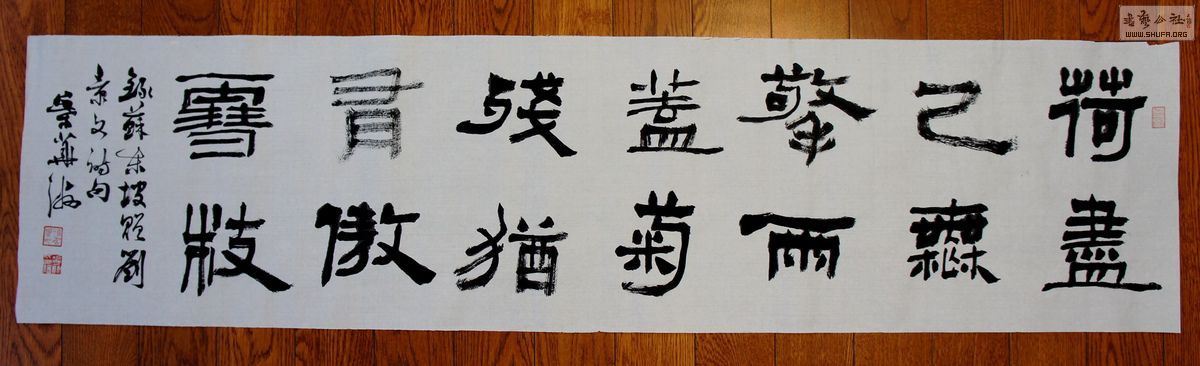 荷盡
已無
擎雨
蓋菊
殘猶
有傲
雪枝
錄蘇東坡贈劉
景文詩句
書藝公社
WWW.SHUFA.ORG